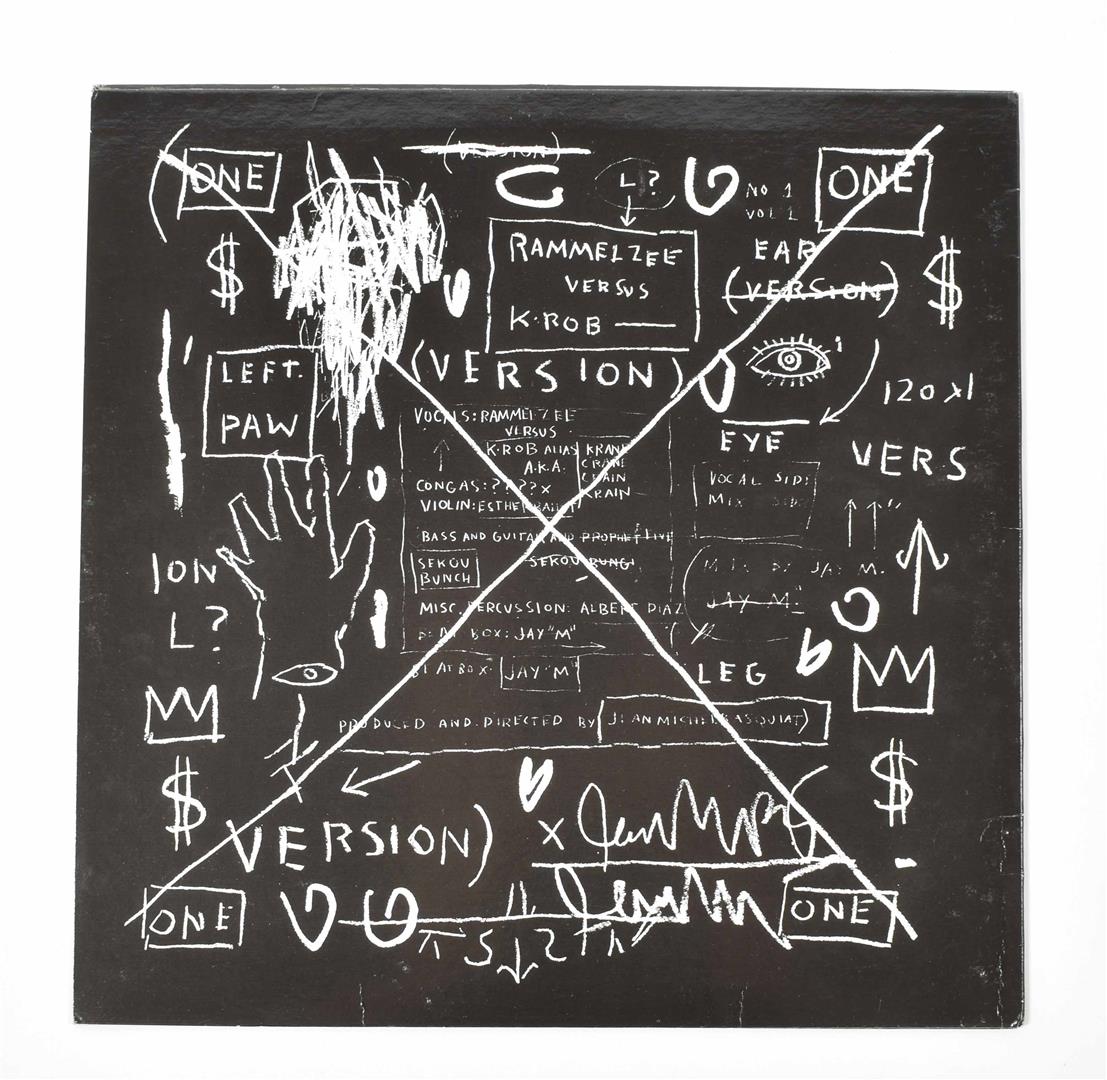 (VERSION)
(ONE
ONE
L?
NO 1
VOL 1
$
RAMMELZEE
VERSUS
K·ROB
EAR
(VERSION)
$
LEFT.
PAW
(VERSION)
120 x1
EYE
VERS
VOCALS: RAMMELZEE
VERSUS
K·ROB ALIAS
A.K.A.
KRANE
CRANE
CRAIN
KRAIN
CONGAS: ????x
VIOLIN: ESTHER
VOCAL SIDE
MIX SIDE
BASS AND GUITAR AND PROPHET FIVE
SEKOU
BUNCH
ION
L?
JAY M.
MISC. PERCUSSION: ALBERT DIAZ
BEAT BOX: JAY "M"
BEAT BOX: JAY "M"
LEG
PRODUCED AND DIRECTED BY JEAN MICHEL BASQUIAT)
$
$
VERSION)
x
ONE
ONE